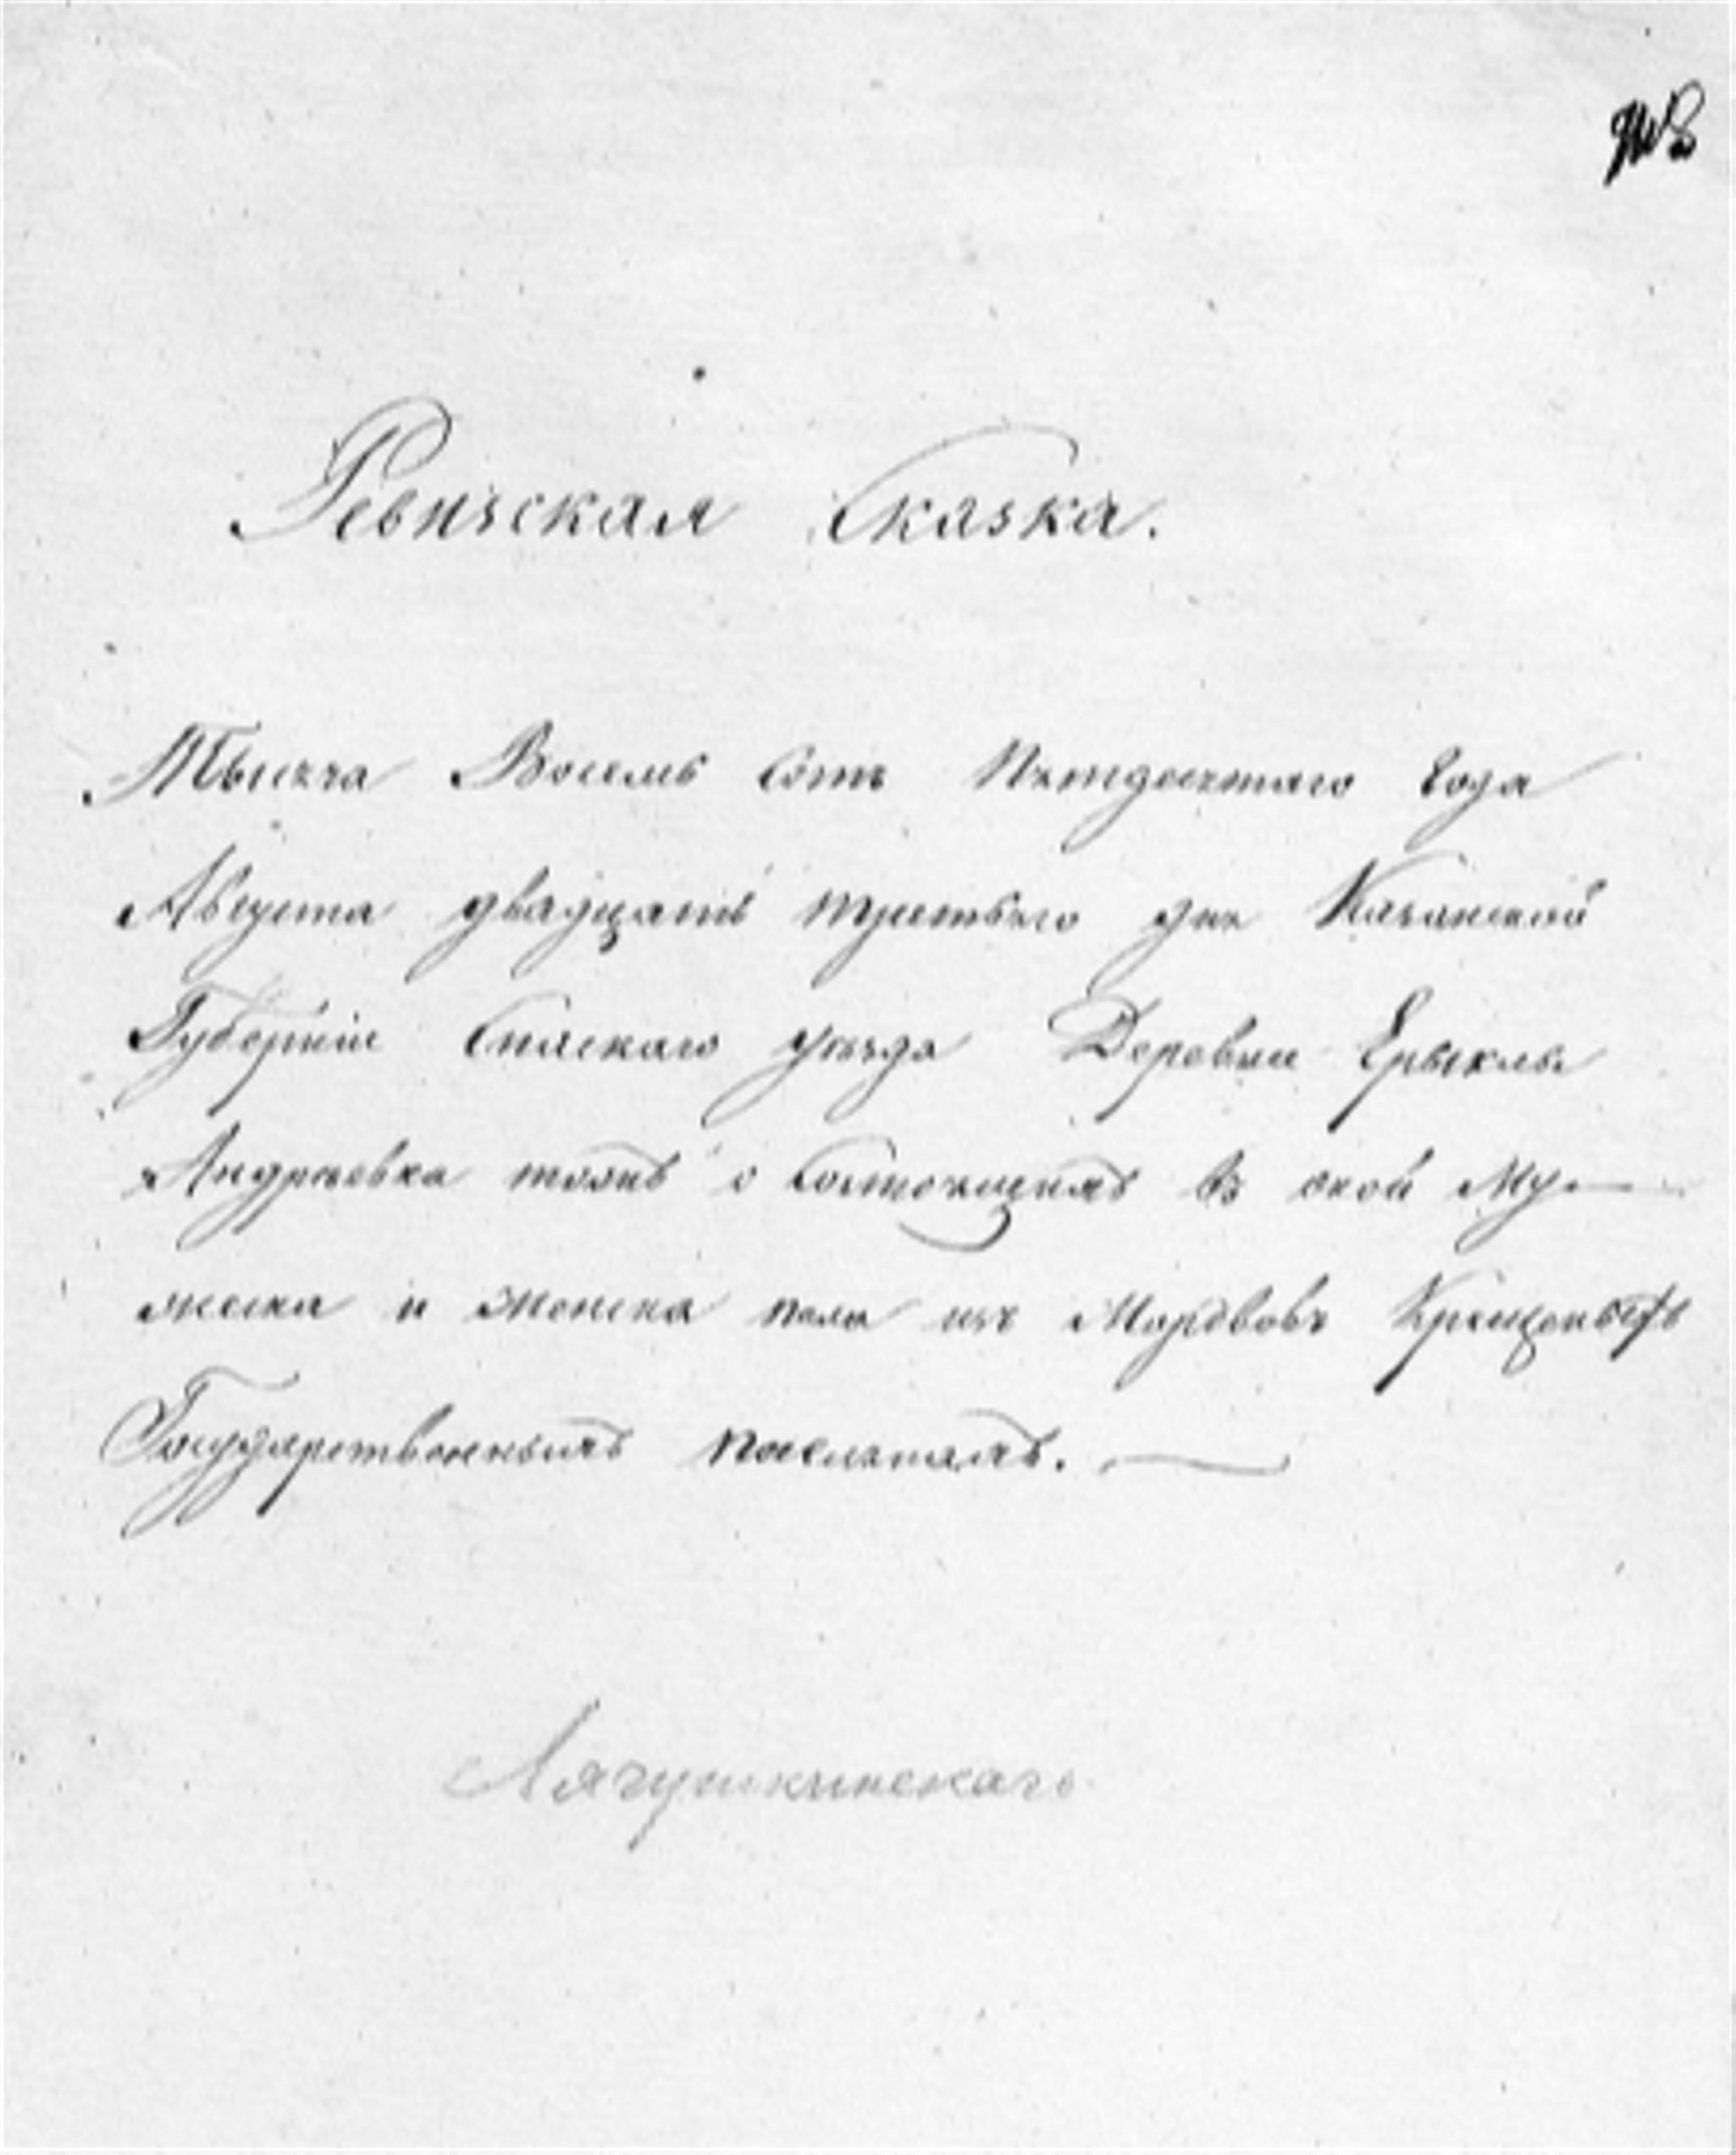 Ревиская Сказка.
Тысяча Восемь Сотъ Пятдесятаго Года
Августа двадцать третьяго дня Казанской
Губерніи Спаскаго уѣзда Деревни Ерыклы
Андреевка тожъ о состоящихъ въ оной Му-
жеска и женска пола изъ Мордвовъ Крещеныхъ
Государственныхъ поселянахъ.